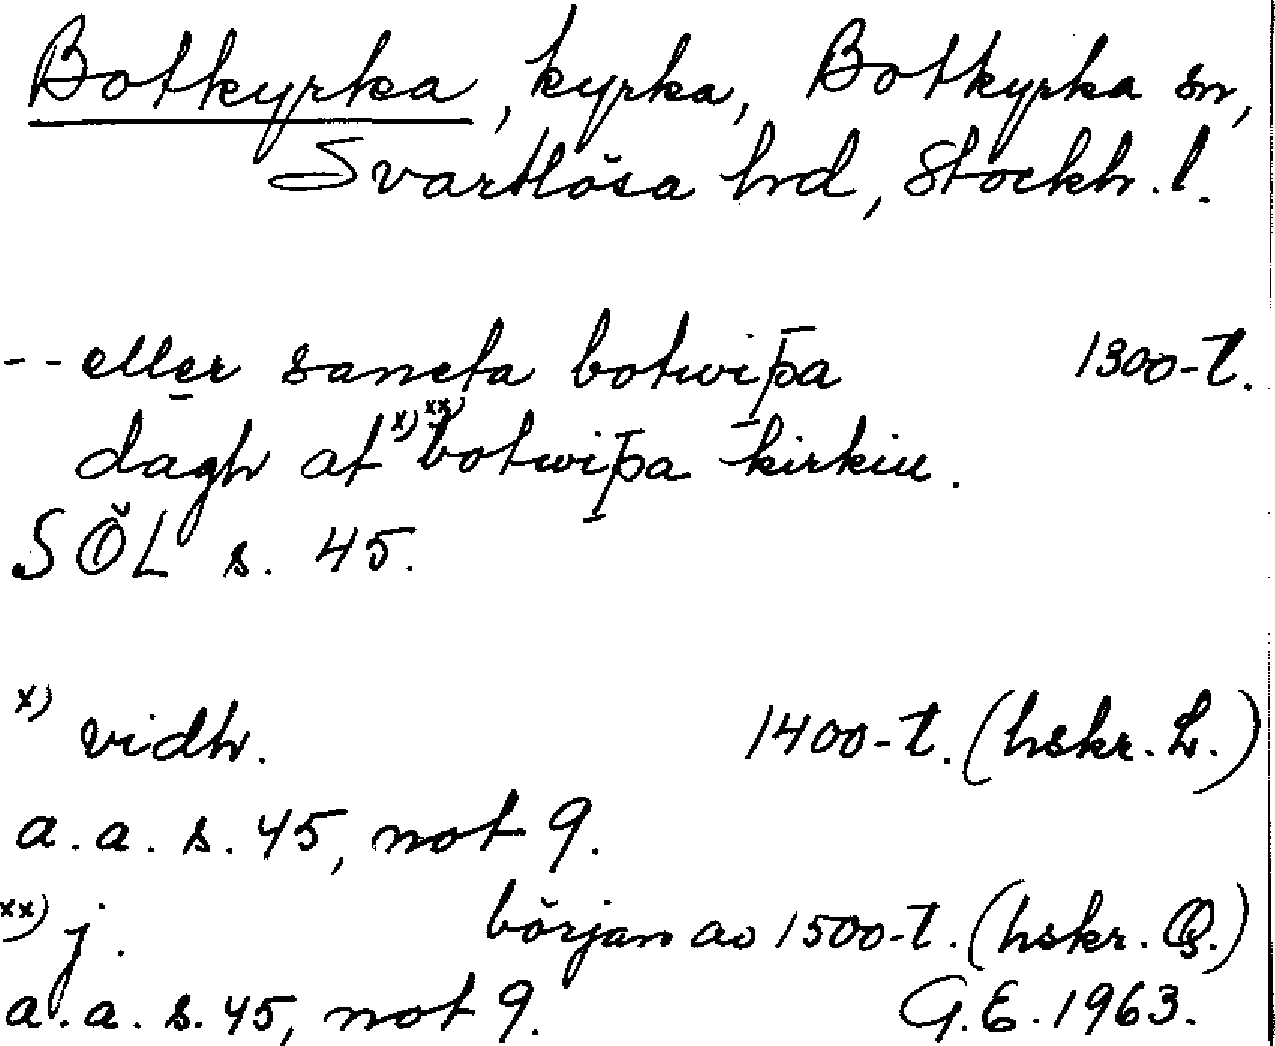 Botkyrka, kyrka, Botkyrka sn,
Svartlösa hrd, Stockh. l.
-- eller sancta botwiþa 1300-t.
dagh at x) xx) botwiþa kirkiu.
SÖL s. 45.
x) vidh. 1400-t. (hskr. L.)
a. a. s. 45, not 9.
xx) j. början av 1500-t. (hskr. Q.)
a. a. s. 45, not 9. G.E. 1963.